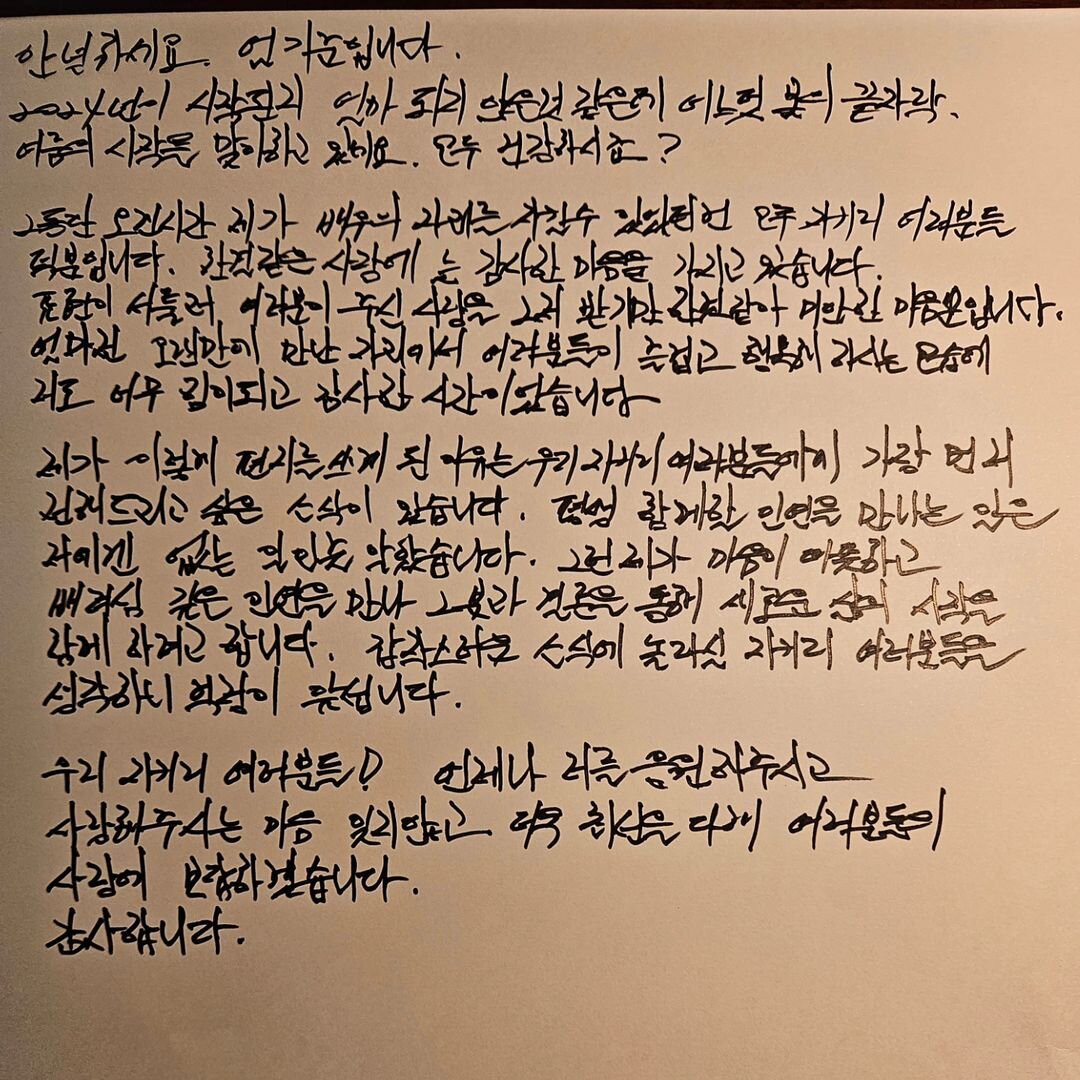 안녕하세요. 엄기준입니다.
2024년이 시작된지 얼마 되지 않은것 같은데 어느덧 봄의 끝자락.
여름의 시작을 맞이하고 있네요. 모두 건강하시죠?
그동안 오랜시간 제가 배우의 자리를 지킬수 있었던건 모두 자키리 여러분들
덕분입니다. 한결같은 사랑에 늘 감사한 마음을 가지고 있습니다.
표현이 서툴러 여러분이 주신 사랑을 그저 받기만 한것같아 미안한 마음뿐입니다.
얼마전 오랜만에 만난 자리에서 여러분들이 즐겁고 행복해 하시는 모습에
저도 너무 힘이되고 감사한 시간이었습니다
제가 이렇게 편지를 쓰게 된 이유는 우리 자키리 여러분들에게 가장 먼저
전해드리고 싶은 소식이 있습니다. 평생 함께할 인연을 만나는 일은
저에겐 없는 일인줄 알았습니다. 그런 제가 마음이 따뜻하고
배려심 깊은 인연을 만나 그분과 결혼을 통해 새로운 삶의 시작을
함께 하려고 합니다. 갑작스러운 소식에 놀라실 자키리 여러분들을
생각하니 걱정이 앞섭니다.
우리 자키리 여러분들! 언제나 저를 응원해주시고
사랑해주시는 마음 잊지않고 더욱 최선을 다해 여러분들의
사랑에 보답하겠습니다.
감사합니다.